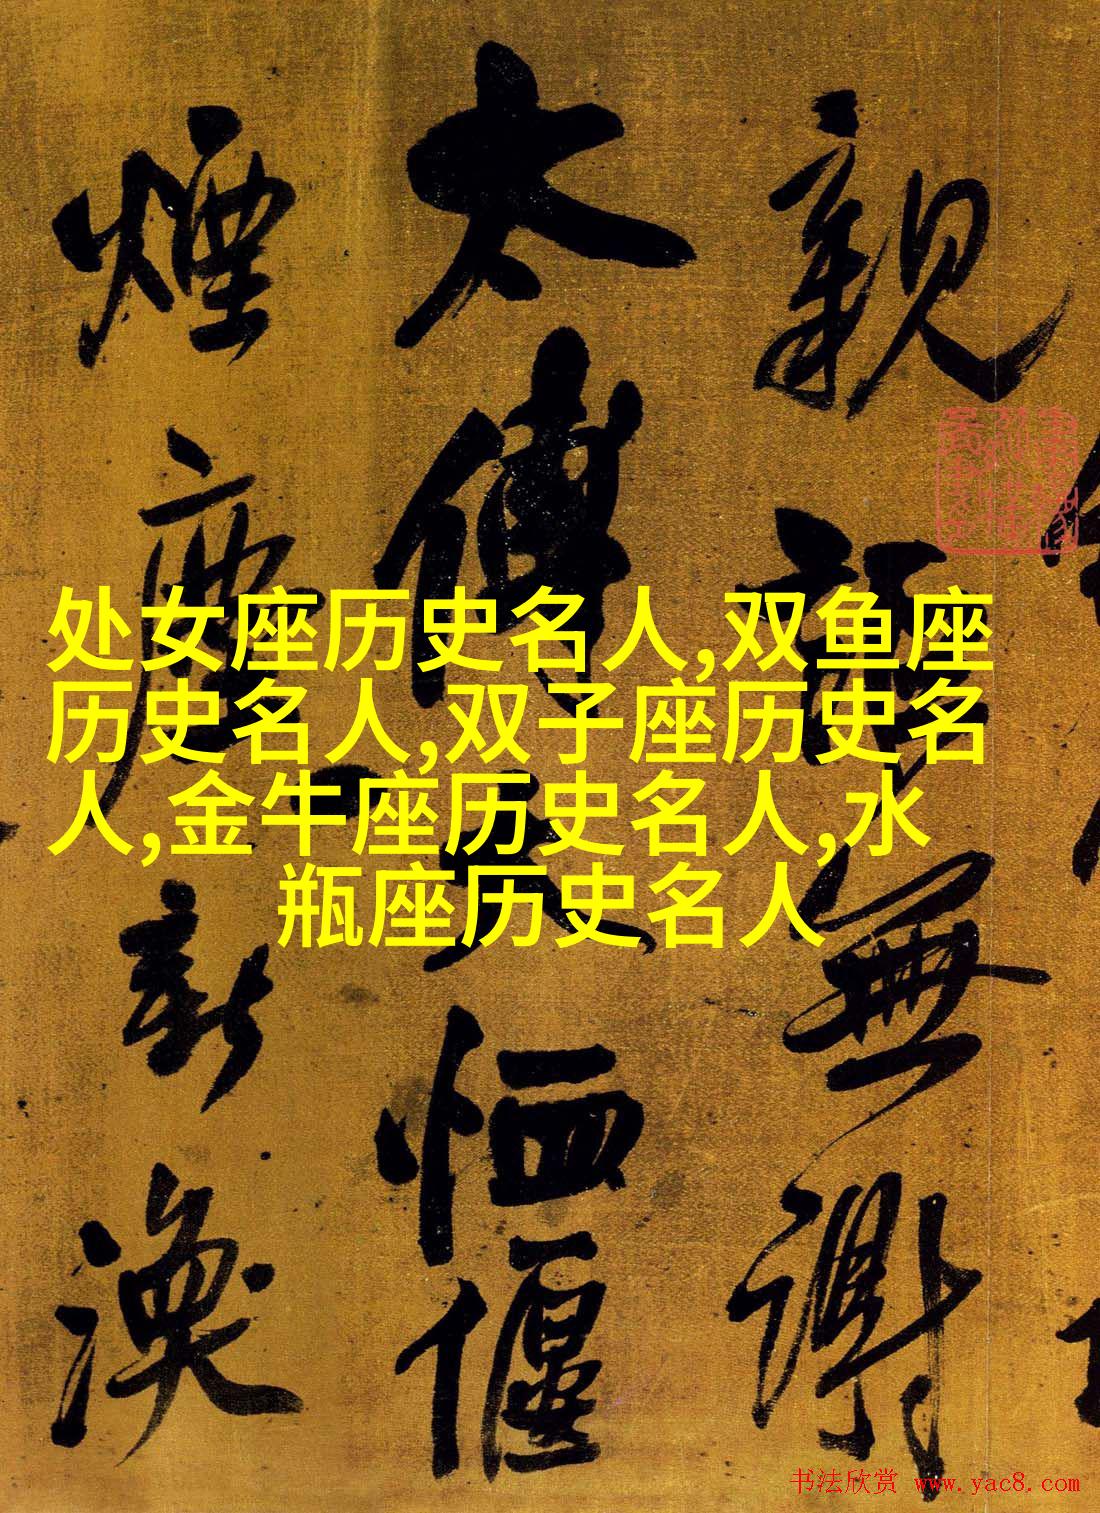 处女座历史名人,双鱼座
历史名人,双子座历史名
人,金牛座历史名人,水
瓶座历史名人
親
無
謝
太
傅
恤
偃
煙
新
渙
书法欣赏 www.yac8.com